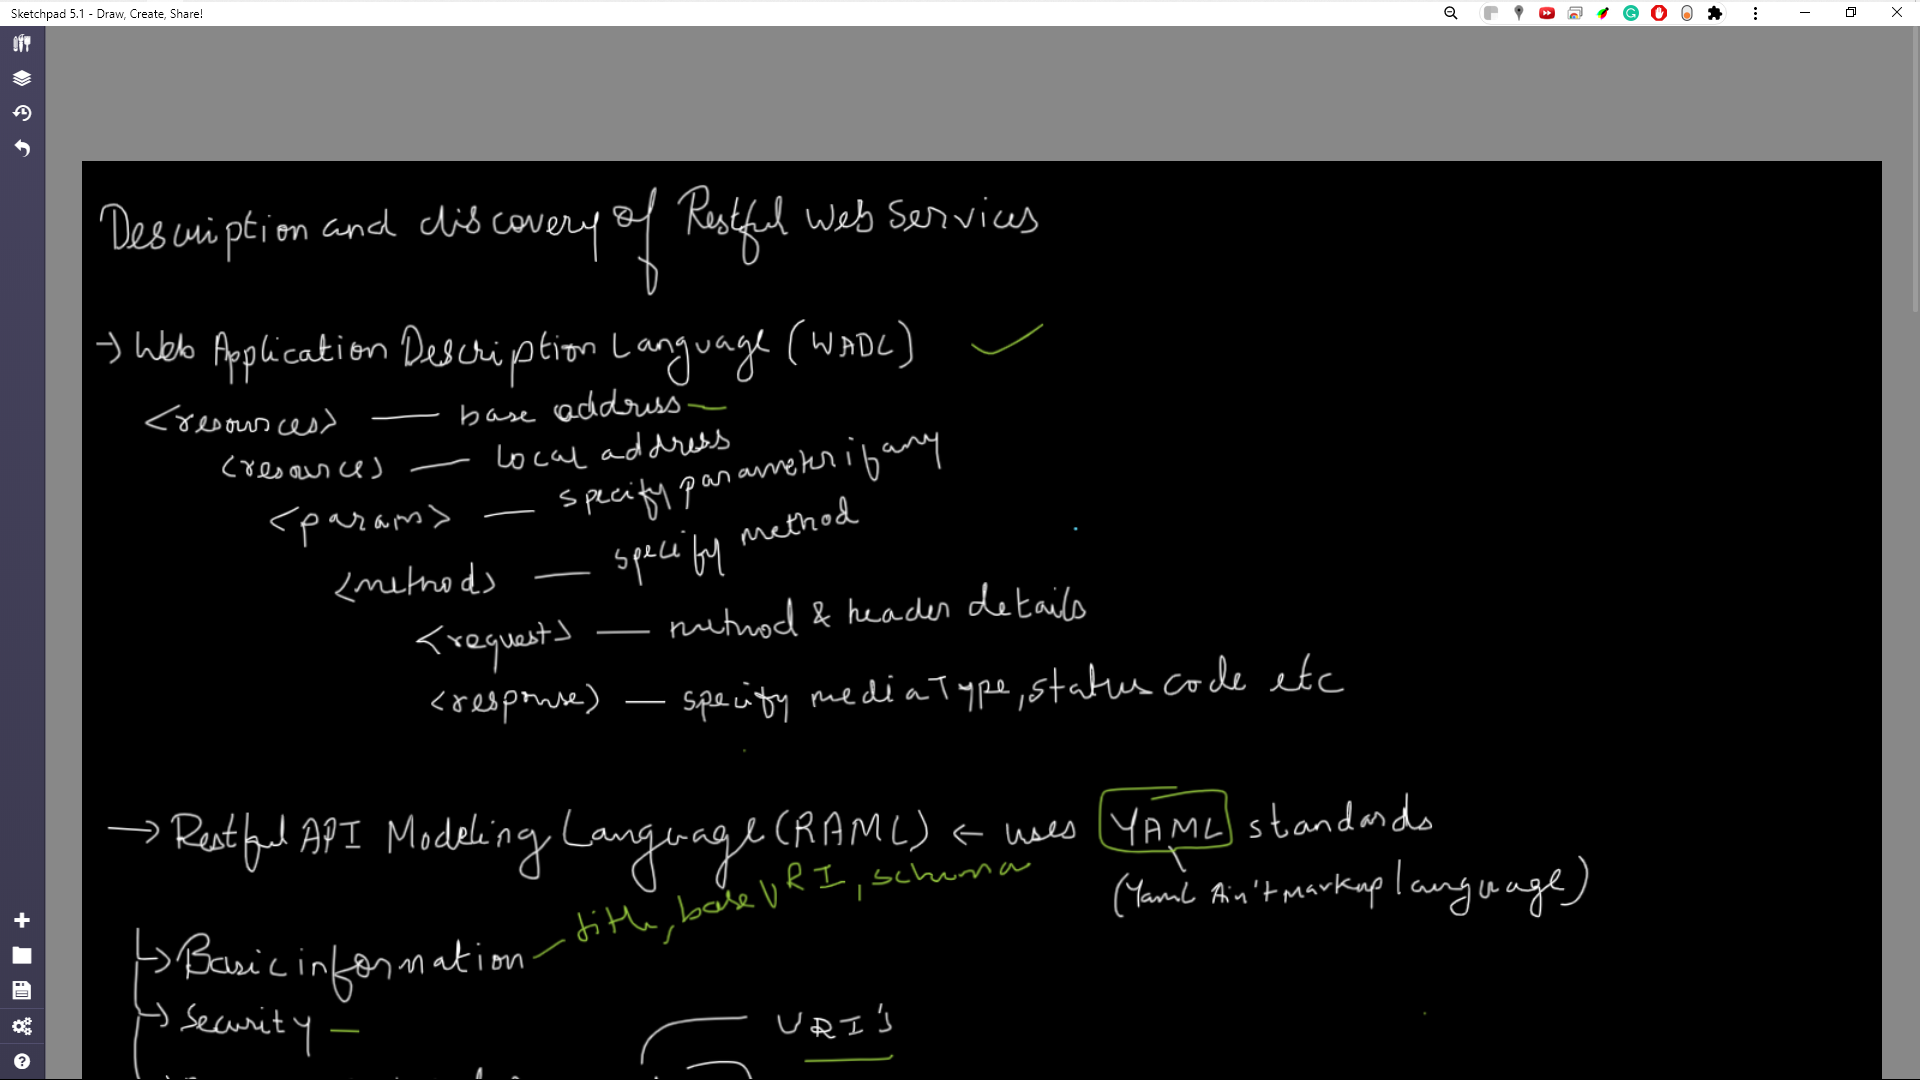 Sketchpad 5.1 - Draw, Create, Share!
Description and discovery of Restful Web Services
→ Web Application Description Language (WADL)
<resources> — base address
<resource> — local address
<params> — specify parameter if any
<method> — specify method
<request> — method & header details
<response> — specify mediaType, status code etc
→ Restful API Modeling Language (RAML) ← uses YAML standards
(Yaml Ain't markup language)
Basic information – title, baseURI, schema
Security –
URI's